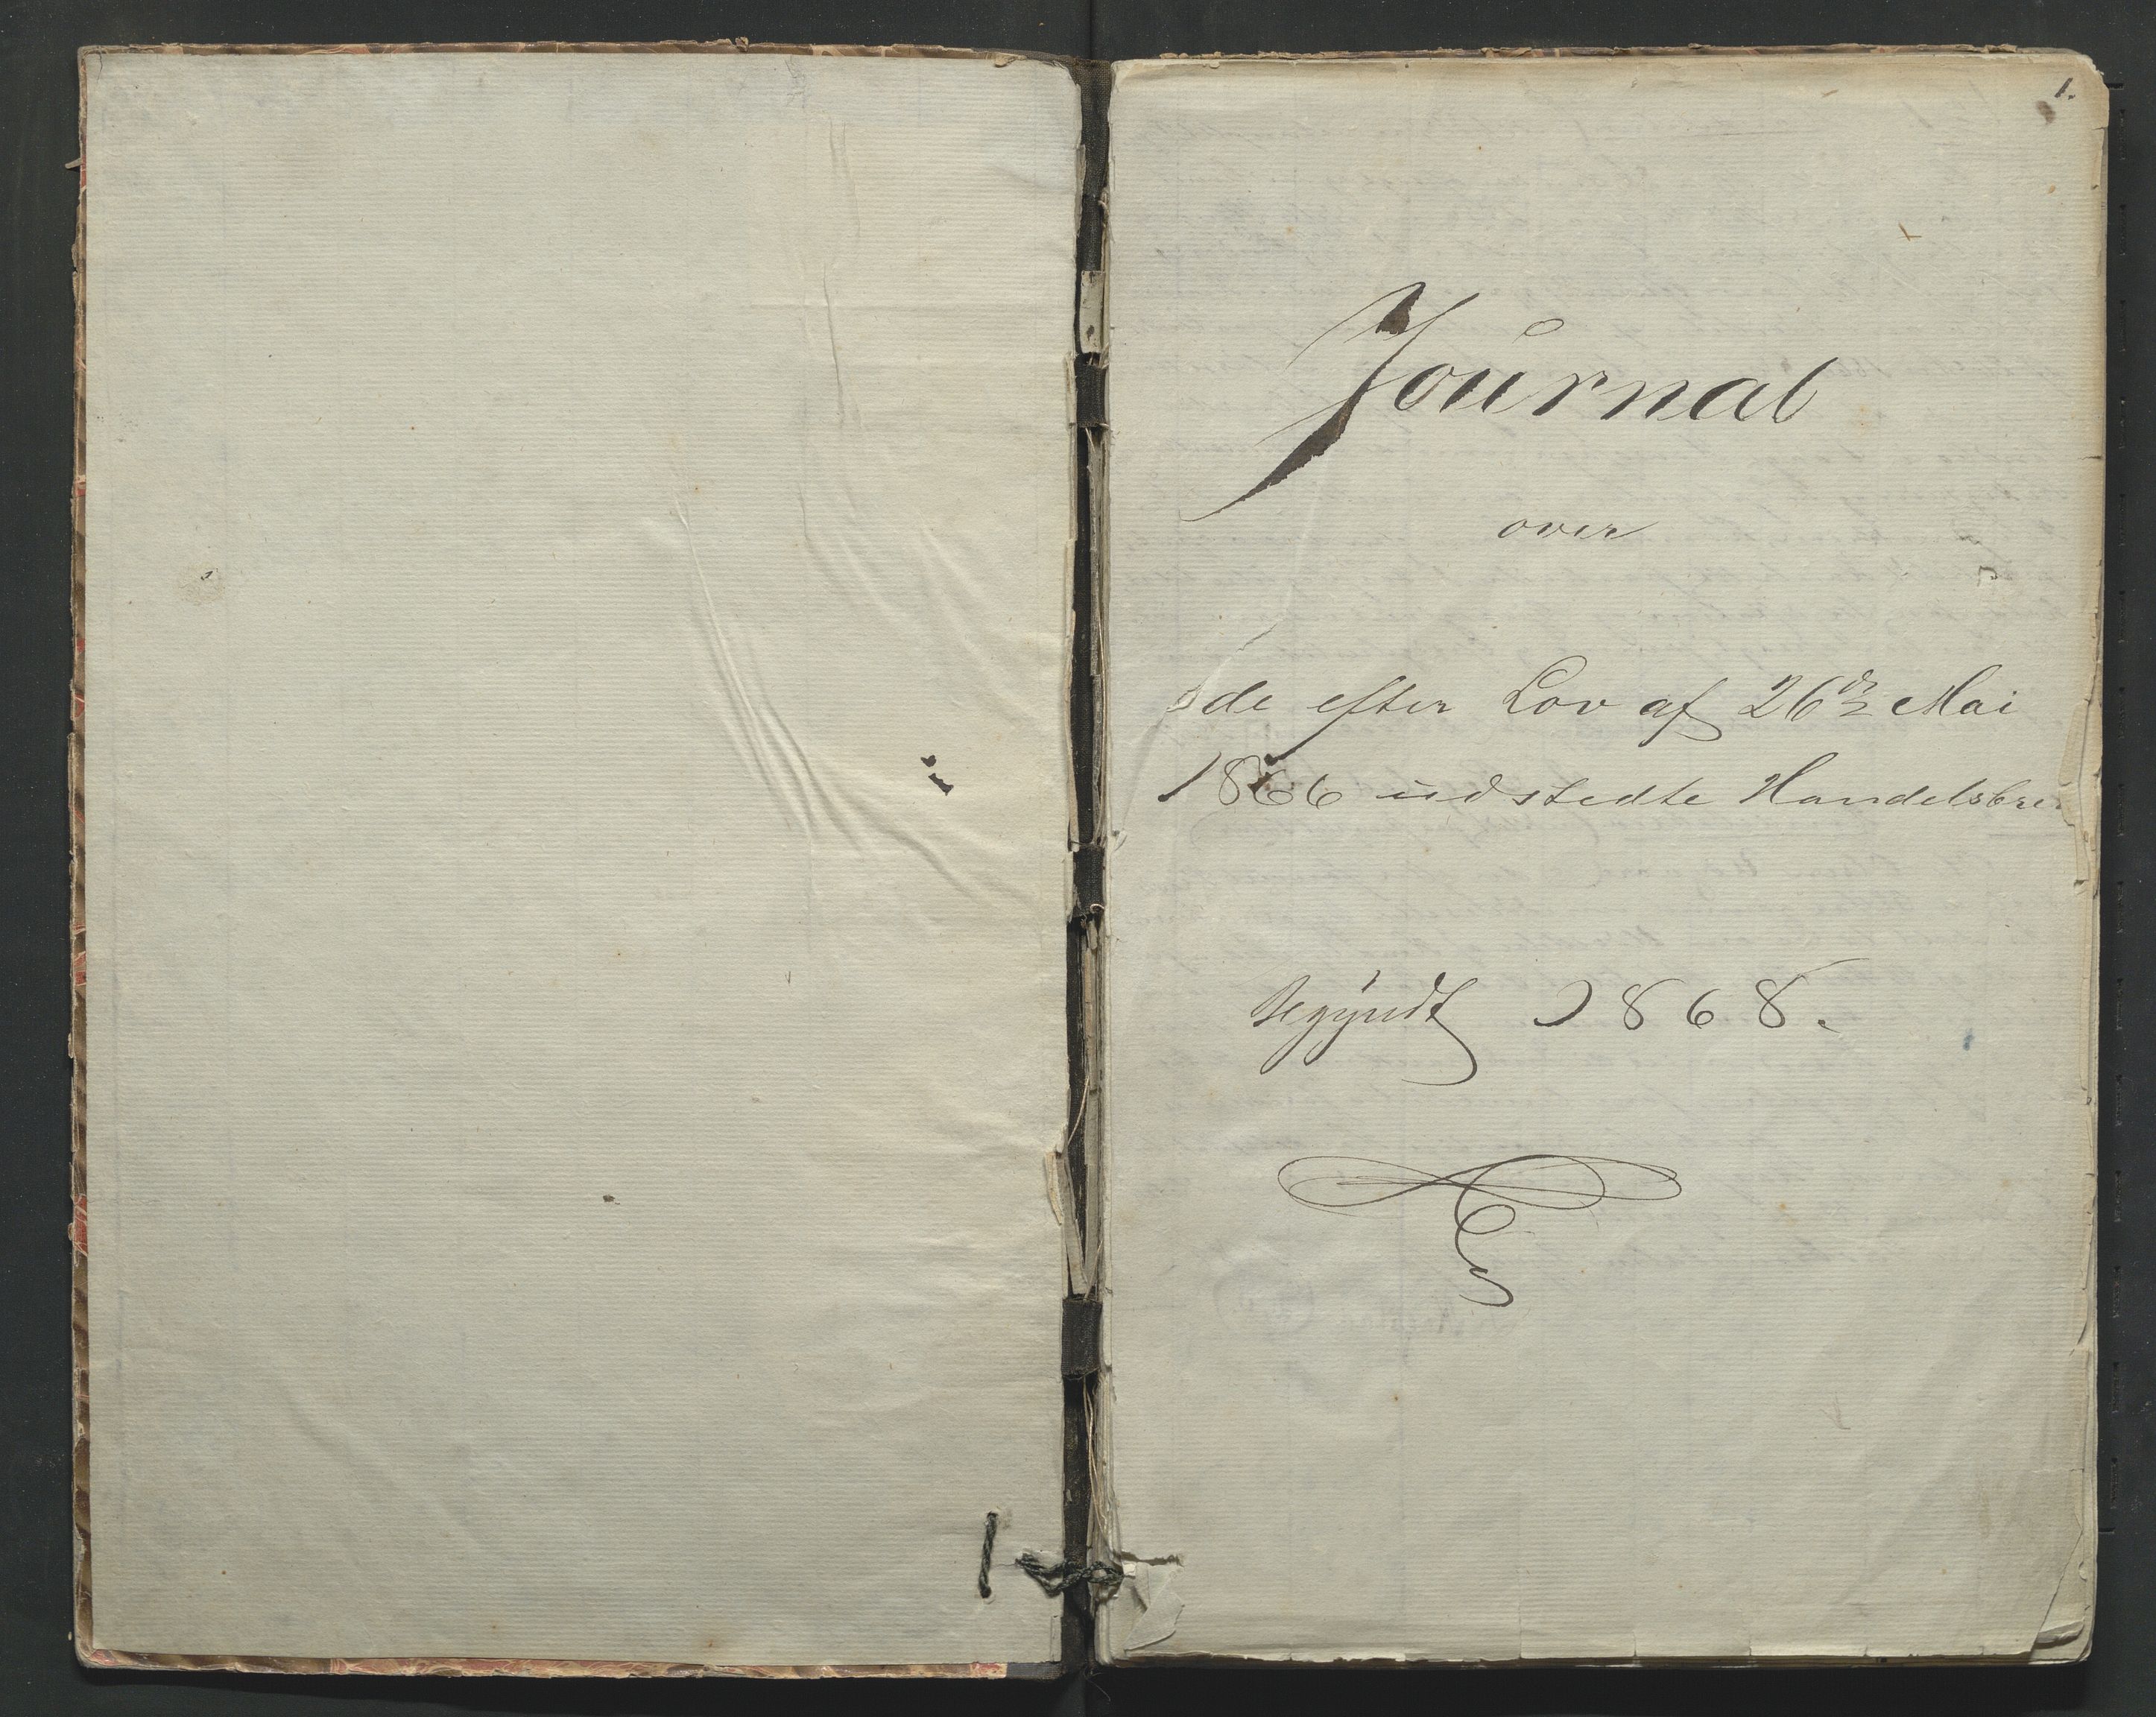 1.
Journal
over
de efter Lov af 26de Mai
1866 udstedte Handelsbre
Begyndt 1868.